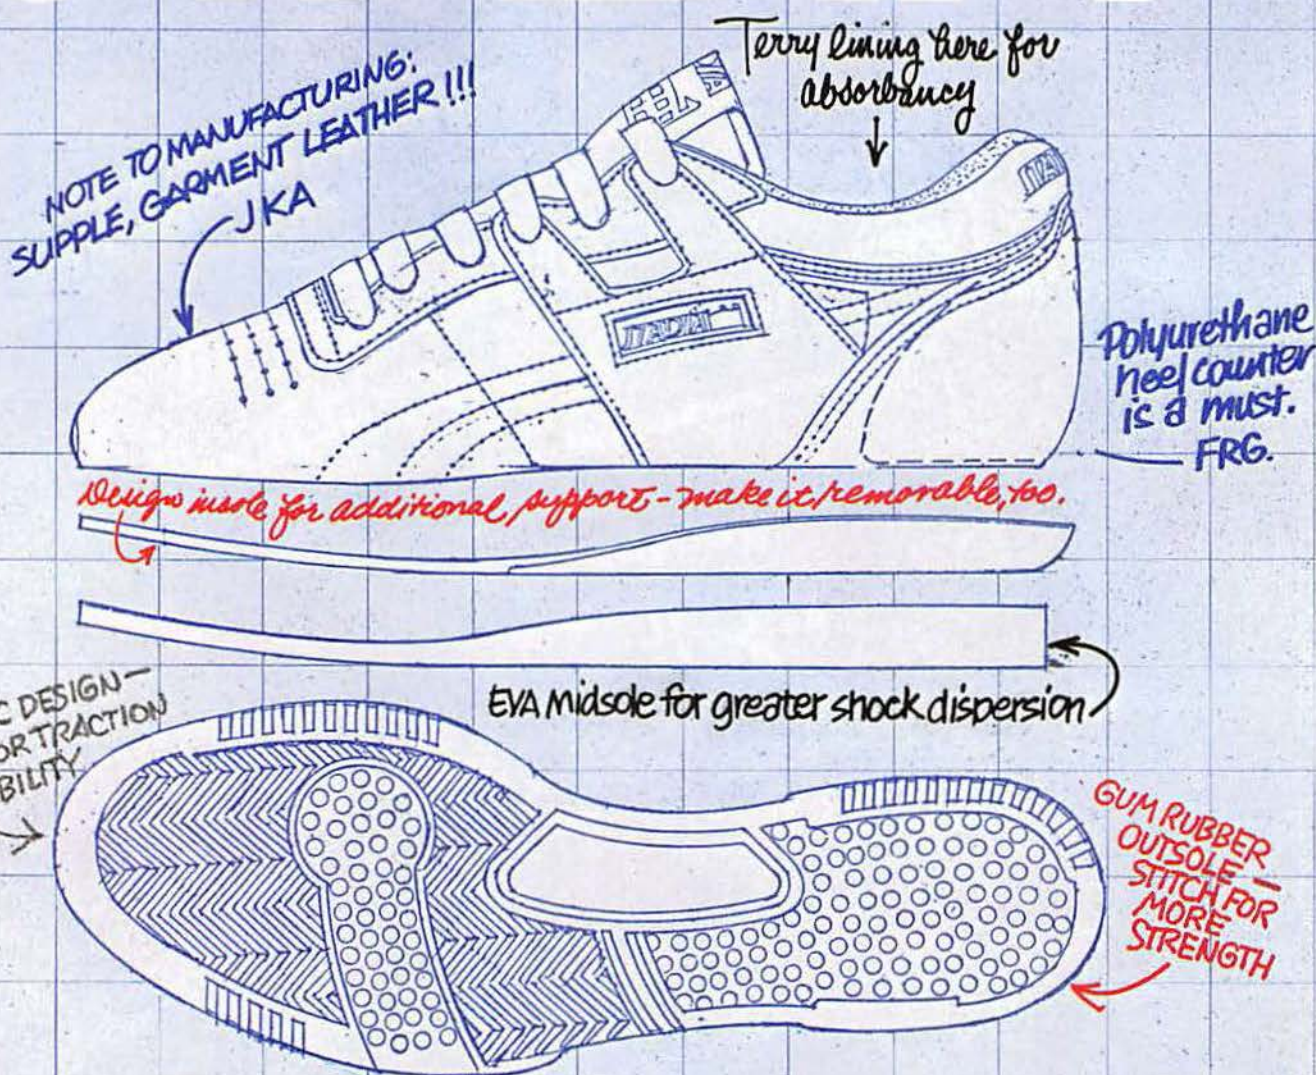 NOTE TO MANUFACTURING:
SUPPLE, GARMENT LEATHER!!!
JKA
Terry lining here for
absorbancy
Polyurethane
heel counter
is a must.
FRG.
Design insole for additional support - make it removable, too.
EVA midsole for greater shock dispersion
C DESIGN—
OR TRACTION
BILITY
GUM RUBBER
OUTSOLE —
STITCH FOR
MORE
STRENGTH